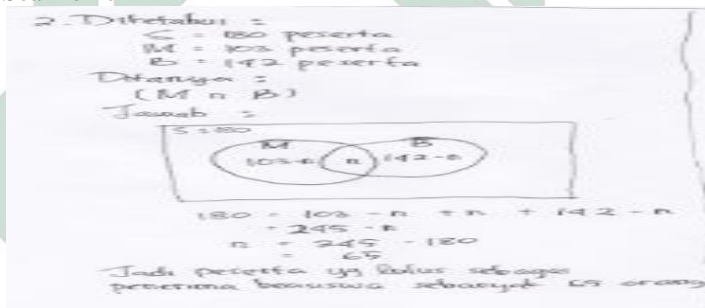 2. Diketahui :
S = 180 peserta
M = 103 peserta
B = 142 peserta
Ditanya :
(M n B)
Jawab :
S = 180
M B
103-n n 142-n
180 = 103 - n + n + 142 - n
= 245 - n
n = 245 - 180
= 65
Jadi peserta yg lulus sebagai
penerima beasiswa sebanyak 65 orang